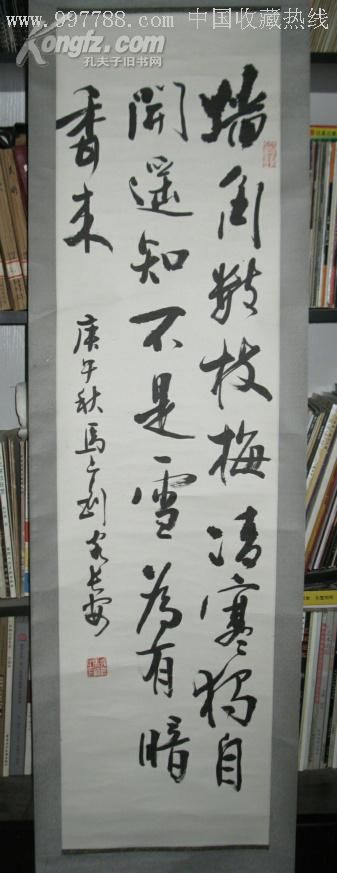 www.997788.com 中国收藏热线
Kongfz.com
孔夫子旧书网
墙角数枝梅清寒独自
開遥知不是雪為有暗
香来
庚午秋馬長安